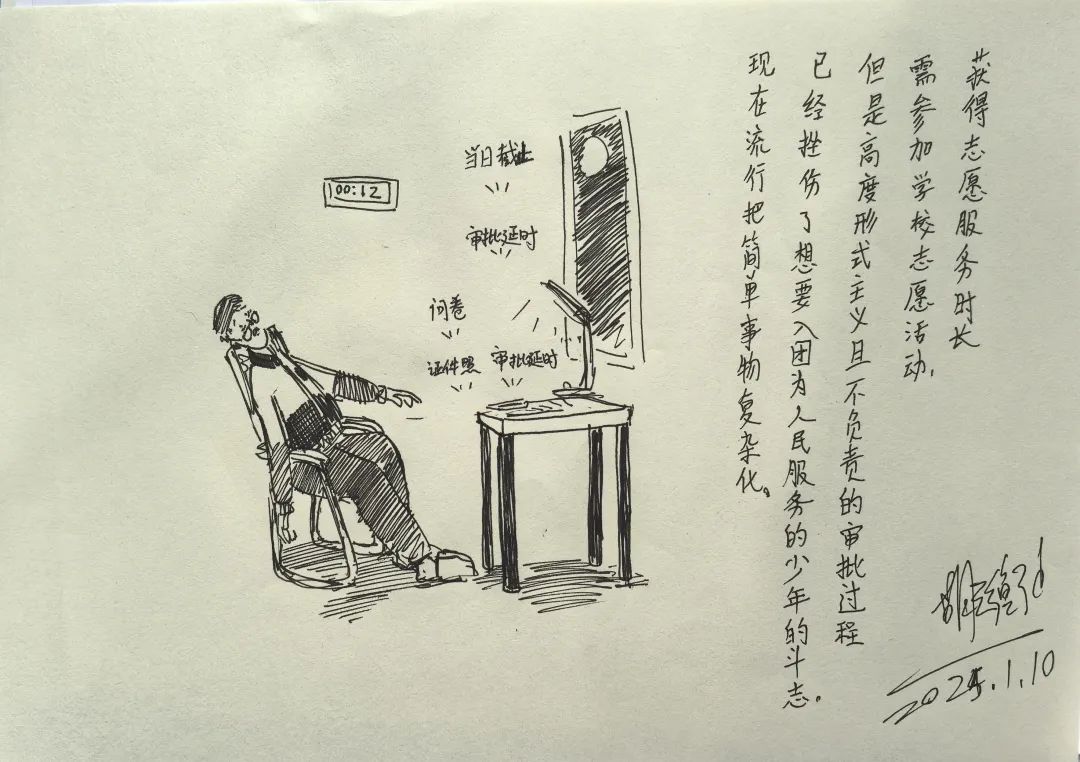 获得志愿服务时长
需参加学校志愿活动,
但是高度形式主义且不负责的审批过程
已经挫伤了想要入团为人民服务的少年的斗志。
现在流行把简单事物复杂化。
当日截止
00:12
审批延时
问卷
证件照
审批延时
2025.1.10